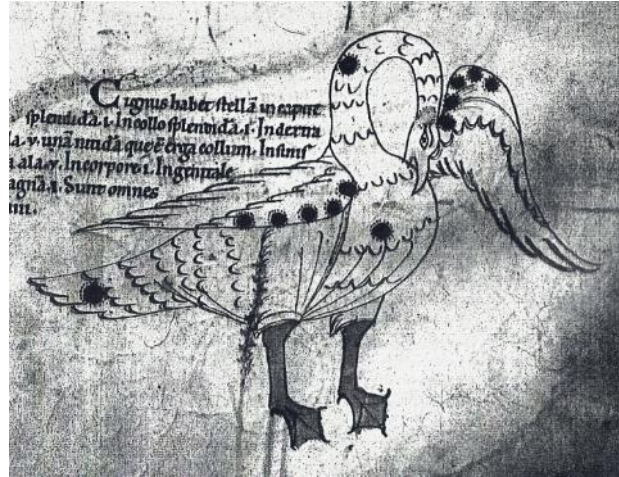 Cugnus habet stellā in capite
splendidā .i. In collo splendidā .i. In dextra
la .v. unā nitidā que ē erga collum. In sinis
a ala .v. In corpore .i. In genuale
agnā .i. Sunt omnes
iiii.